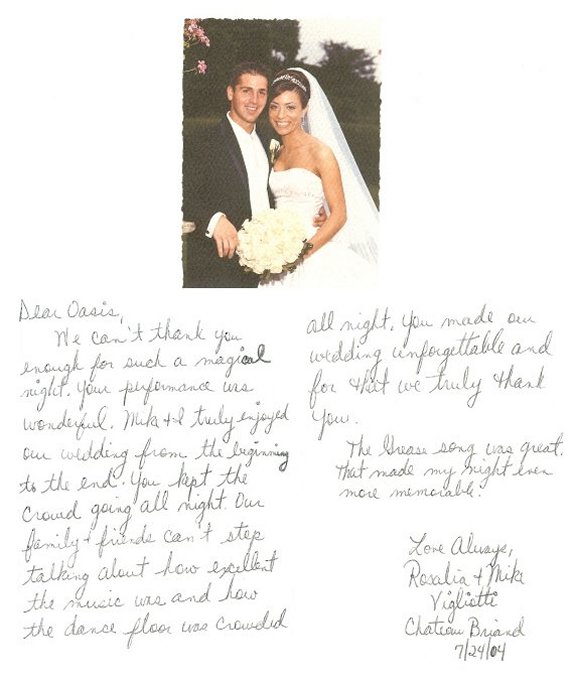 Dear Oasis,
We can't thank you
enough for such a magical
night. Your performance was
wonderful. Mike & I truly enjoyed
our wedding from the beginning
to the end. You kept the
crowd going all night. Our
family & friends can't stop
talking about how excellent
the music was and how
the dance floor was crowded
all night. You made our
wedding unforgettable and
for that we truly thank
you.
The Grease song was great.
That made my night even
more memorable.
Love Always,
Rosalia & Mike
Vigliotti
Chateau Briand
7/24/04